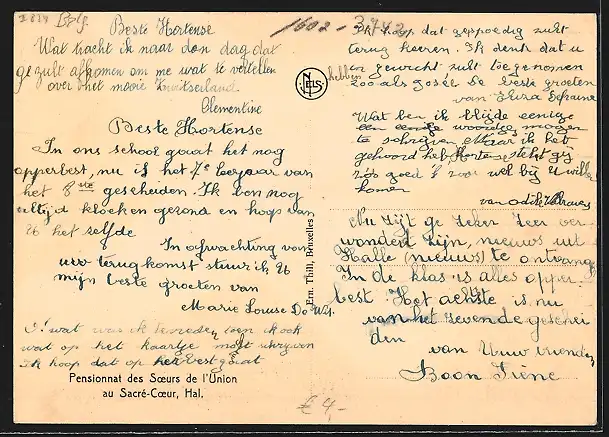 Beste Hortense
Wat tracht ik naar den dag dat
ge zult afkomen om me wat te vertellen
over het mooie Zwitserland.
Clementine
Beste Hortense
In ons school gaat het nog
opperbest, nu is het 7e leerjaar van
het 8ste gescheiden. Ik ben nog
altijd kloeken gezond en hoop van
U het zelfde
In afwachting van
uw terugkomst stuur ik U
mijn beste groeten van
Marie Louise De
O! wat was ik tevreden toen ik ook
wat op het kaartje mocht schrijven
Ik hoop dat op het best gaat
Pensionnat des Sœurs de l'Union
au Sacré-Cœur, Hal.
Ern. Thill, Bruxelles
NELS
1602 - 3742
Ik hoop dat ge spoedig zult
terug keeren. Ik denk dat u
en gewicht zult toegenomen
hebben zoo als José. De beste groeten
van Eliza
Wat ben ik blijde eenige
een eenige woordje mogen
te schrijven
gehoord heb Hortense stelt gij
zoo goed 't zoor wel bij U willen
komen
van
Nu zijt ge zeker zeer ver-
wonderd zijn, nieuws uit
Halle (nieuws) te ontvang
In de klas is alles opper
best. Het achtste is nu
van het zevende geschei
den
van Uuw vriendin
Boon Irène
£ 4,-